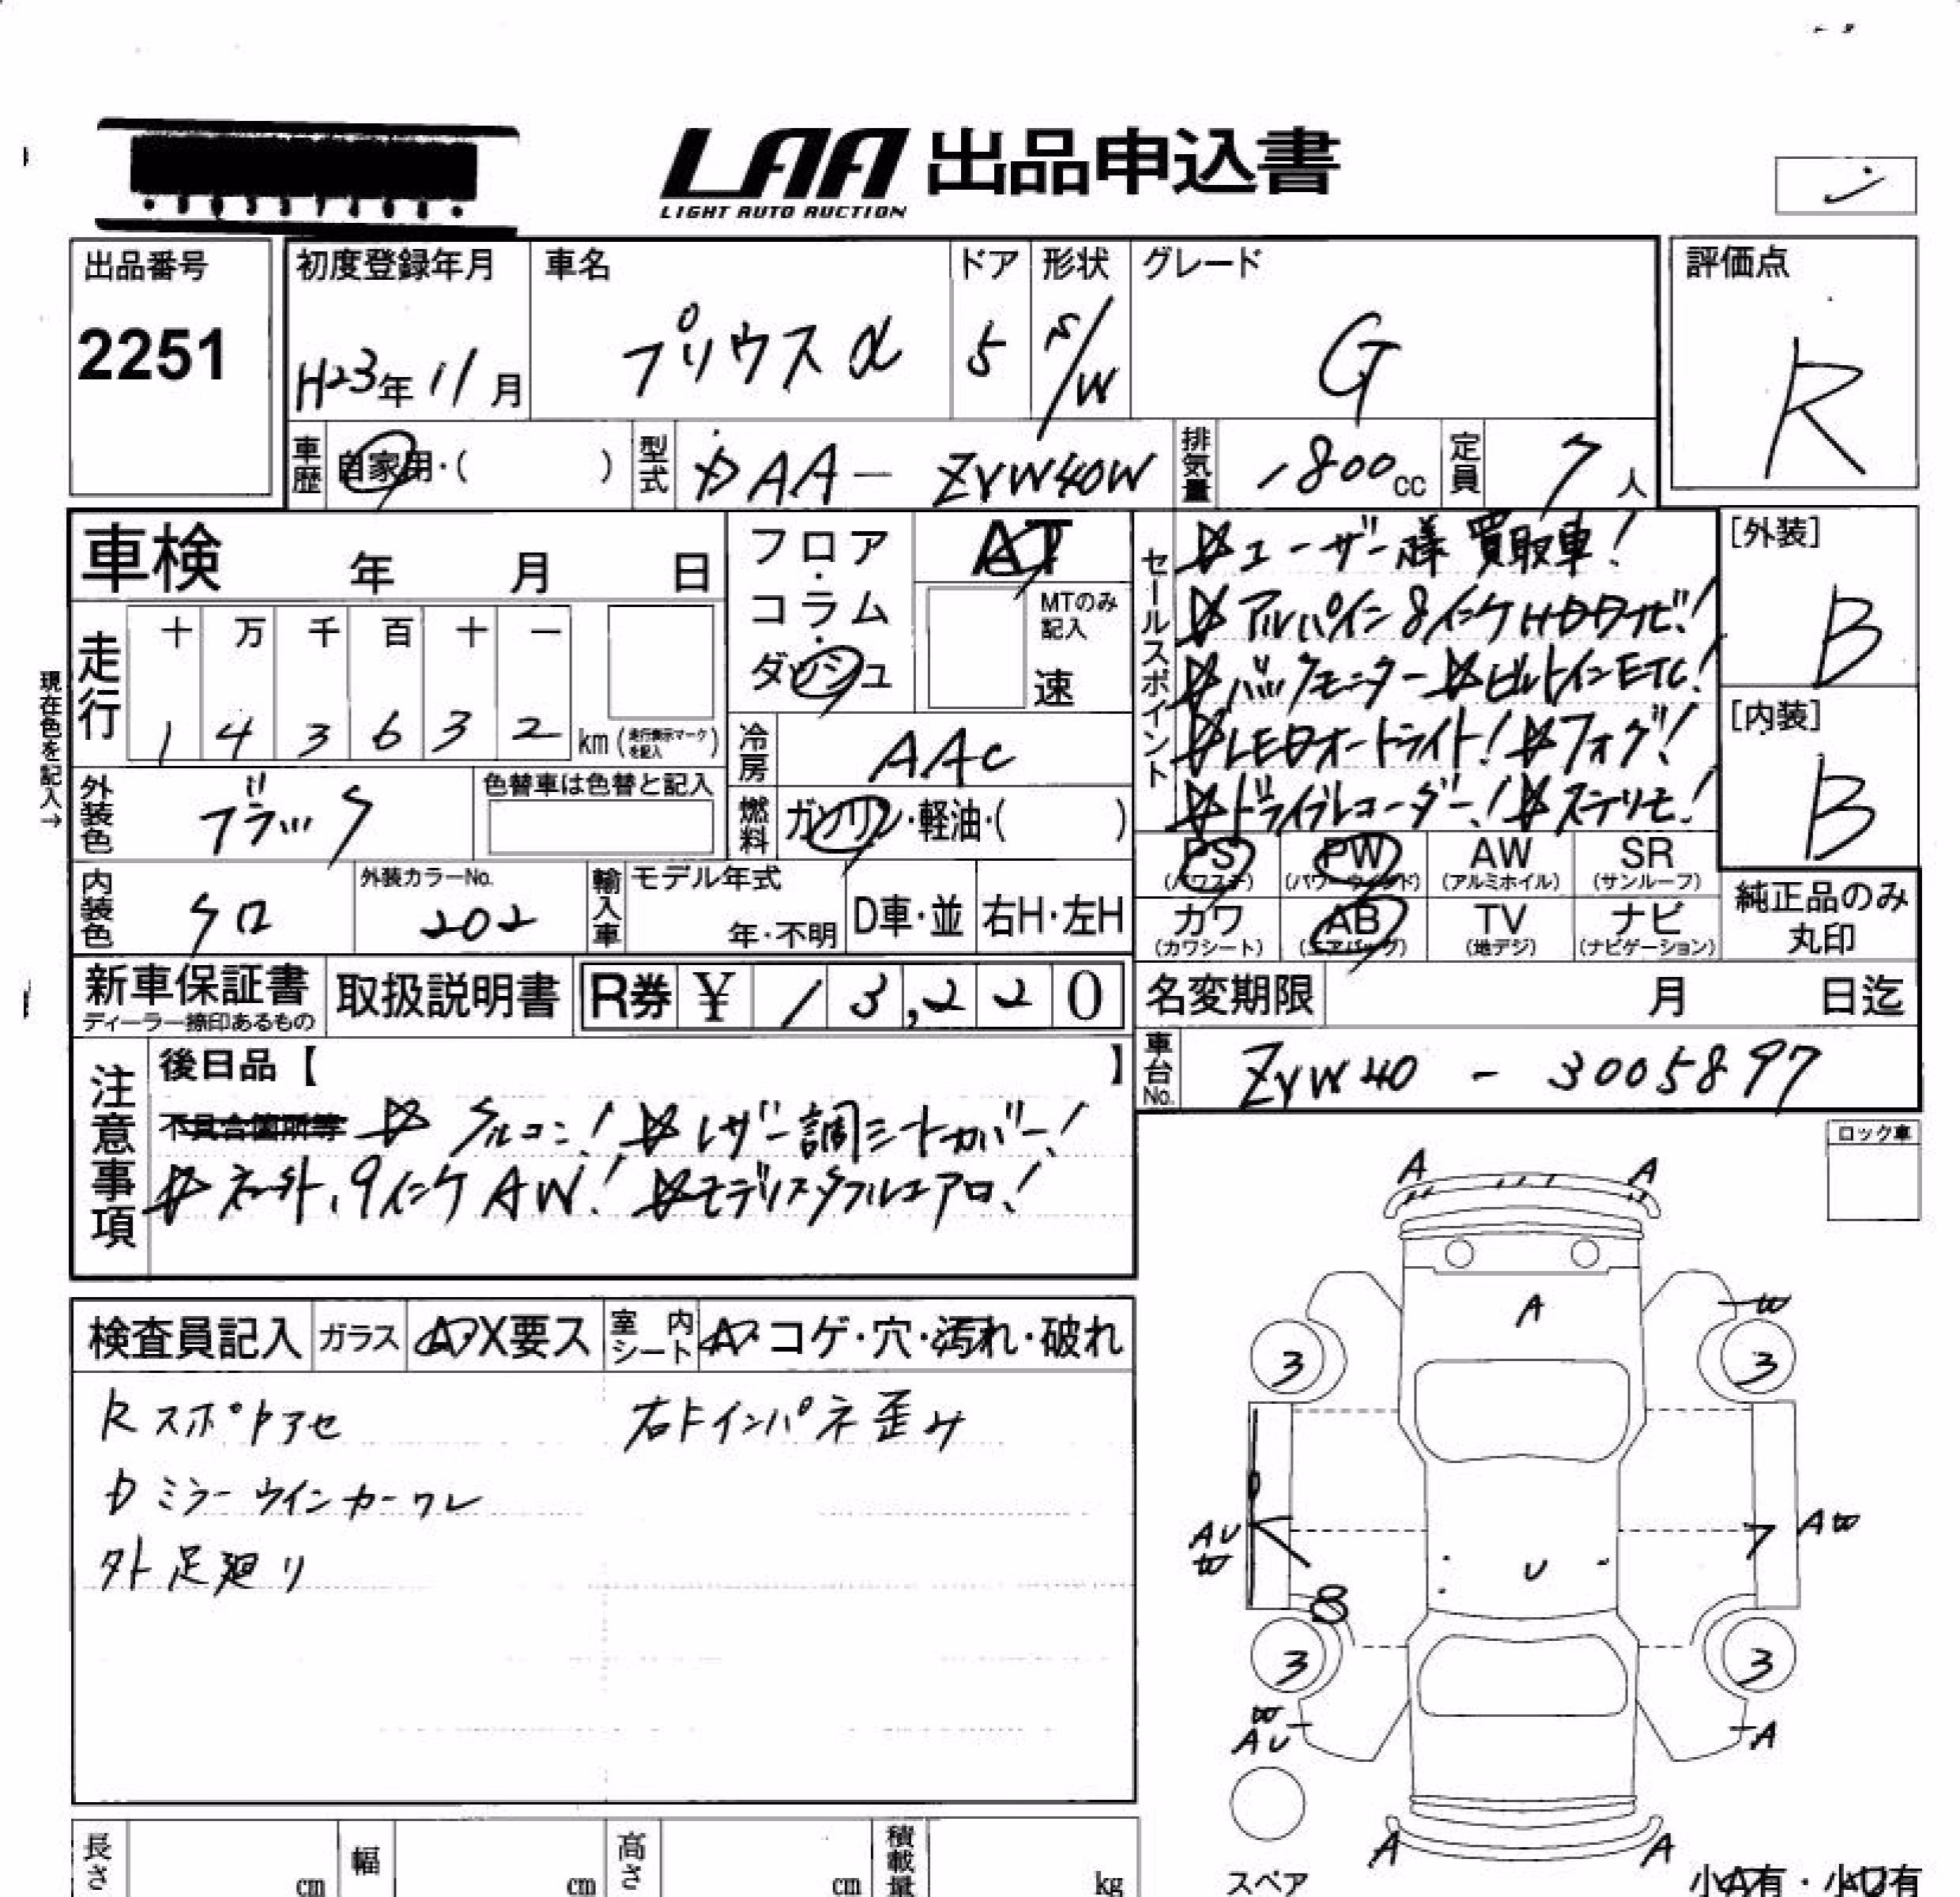 LAA 出品申込書
LIGHT AUTO AUCTION
出品番号
2251
初度登録年月
H23年11月
車名
プリウスα
ドア
5
形状
S/W
グレード
G
評価点
R
車歴
自家用・( )
型式
DAA-ZVW40W
排気量
1800cc
定員
7人
車検 年 月 日
フロア・コラム・ダッシュ
AT
MTのみ記入
速
セールスポイント
☆ユーザー様買取車!
☆アルパイン8インチHDDナビ!
☆バックモニター☆ビルトインETC!
☆LEDオートライト!☆フォグ!
☆ドライブレコーダー!☆ステリモ!
[外装]
B
[内装]
B
現在色を記入→
走行
十 万 千 百 十 一
1 4 3 6 3 2 km(走行表示マークを記入)
冷房
AAC
外装色
ブラック
色替車は色替と記入
燃料
ガソリン・軽油・( )
PS (パワステ)
PW (パワーウインド)
AW (アルミホイル)
SR (サンルーフ)
内装色
クロ
外装カラーNo.
202
輸入車
モデル年式
年・不明
D車・並
右H・左H
カワ (カワシート)
AB (エアバッグ)
TV (地デジ)
ナビ (ナビゲーション)
純正品のみ丸印
新車保証書
ディーラー捺印あるもの
取扱説明書
R券 ¥ 13,220
名変期限 月 日迄
車台No.
ZVW40-3005897
注意事項
後日品【 】
不具合箇所等 ☆クルコン!☆レザー調シートカバー!
☆社外19インチAW!☆モデリスタフルエアロ!
ロック車
検査員記入
ガラス
A・X要ス
室内シート
A・コゲ・穴・汚れ・破れ
Rスポトアセ
右Fインパネ歪み
Dミラーウインカーワレ
外足廻り
A A
A
W
3 3
AU
W
AW
U
8
3 3
W
AU
A
A A
スペア
小A有・小U有
長さ cm
幅 cm
高さ cm
積載量 kg